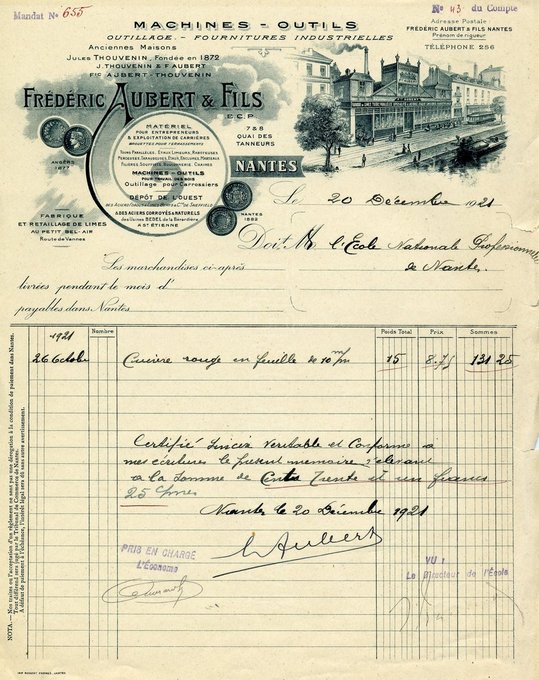 Mandat No 655
No 43 du Compte
MACHINES - OUTILS
OUTILLAGE - FOURNITURES INDUSTRIELLES
Adresse Postale:
FRÉDÉRIC AUBERT & FILS NANTES
Prénom de rigueur
TÉLÉPHONE 256
Anciennes Maisons
JULES THOUVENIN, Fondée en 1872
J. THOUVENIN & F. AUBERT
Fic AUBERT-THOUVENIN
FRÉDÉRIC AUBERT & FILS
E.C.P.
7 & 8
QUAI DES
TANNEURS
NANTES
MATÉRIEL
POUR ENTREPRENEURS
& EXPLOITATION DE CARRIÈRES
BROUETTES POUR TERRASSEMENTS
MACHINES - OUTILS
POUR TRAVAIL DES BOIS
Outillage pour Carrossiers
DÉPÔT DE L'OUEST
D'ACIERS CORROYÉS & NATURELS
Des Usines BEDEL de la Bérardière
A ST ÉTIENNE
ANGERS
1877
NANTES
1882
FABRIQUE
ET RETAILLAGE DE LIMES
AU PETIT BEL-AIR
Route de Vannes
Le 20 Décembre 1921
Doit M l'Ecole Nationale Professionnelle
de Nantes
Les marchandises ci-après
livrées pendant le mois d'
payables dans Nantes
1921
Nombre
Poids Total
Prix
Sommes
26 Octobre
Cuivre rouge en feuille de 10 m/m
15
8.75
131 25
Certifié Sincère Véritable et Conforme a
mes écritures le présent mémoire s'élevant
a la somme de Cent Trente et un francs
25 cmes
Nantes le 20 Décembre 1921
Aubert
PRIS EN CHARGE
L'Économe
VU:
Le Directeur de l'École
NOTA. — Nos traites ou l'acceptation d'un règlement ne sont pas une dérogation à la condition de paiement dans Nantes.
Tout différend sera jugé par le Tribunal de Commerce de Nantes.
A défaut de paiement à l'échéance, l'intérêt légal sera dû sans autre avertissement.